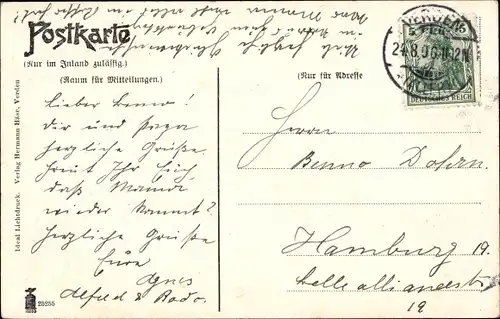 Postkarte
(Nur im Inland zulässig.)
(Raum für Mitteilungen.)
Nur für Adresse
VERDEN
24.8.06.11-12V
DEUTSCHES REICH
Lieber Benno!
Dir und Papa
herzliche Grüße.
Freut Ihr Euch,
daß Mama
wieder kommt?
Herzliche Grüße
Eure
Agnes
Alfred & Bodo.
Herrn
Benno Dohrn.
Hamburg 19.
Bellealliancestr
19
Ideal Lichtdruck. Verlag Hermann Häer, Verden
25255